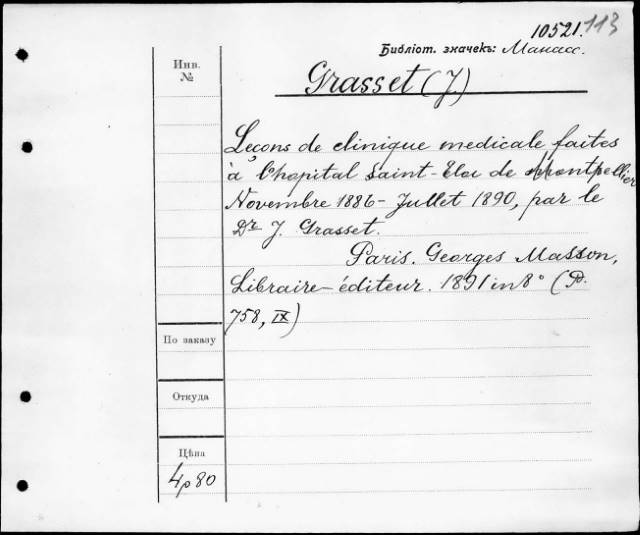 10521. 113
Библіот. значекъ: Манасс.
Инв.
№
Grasset (J)
Leçons de clinique medicale faites
à l'hopital Saint-Eloi de Montpellier
Novembre 1886 - Juillet 1890, par le
Dr J. Grasset.
Paris. Georges Masson,
Libraire - éditeur. 1891 in 8° (P.
758, IX)
По заказу
Откуда
Цѣна
4р80